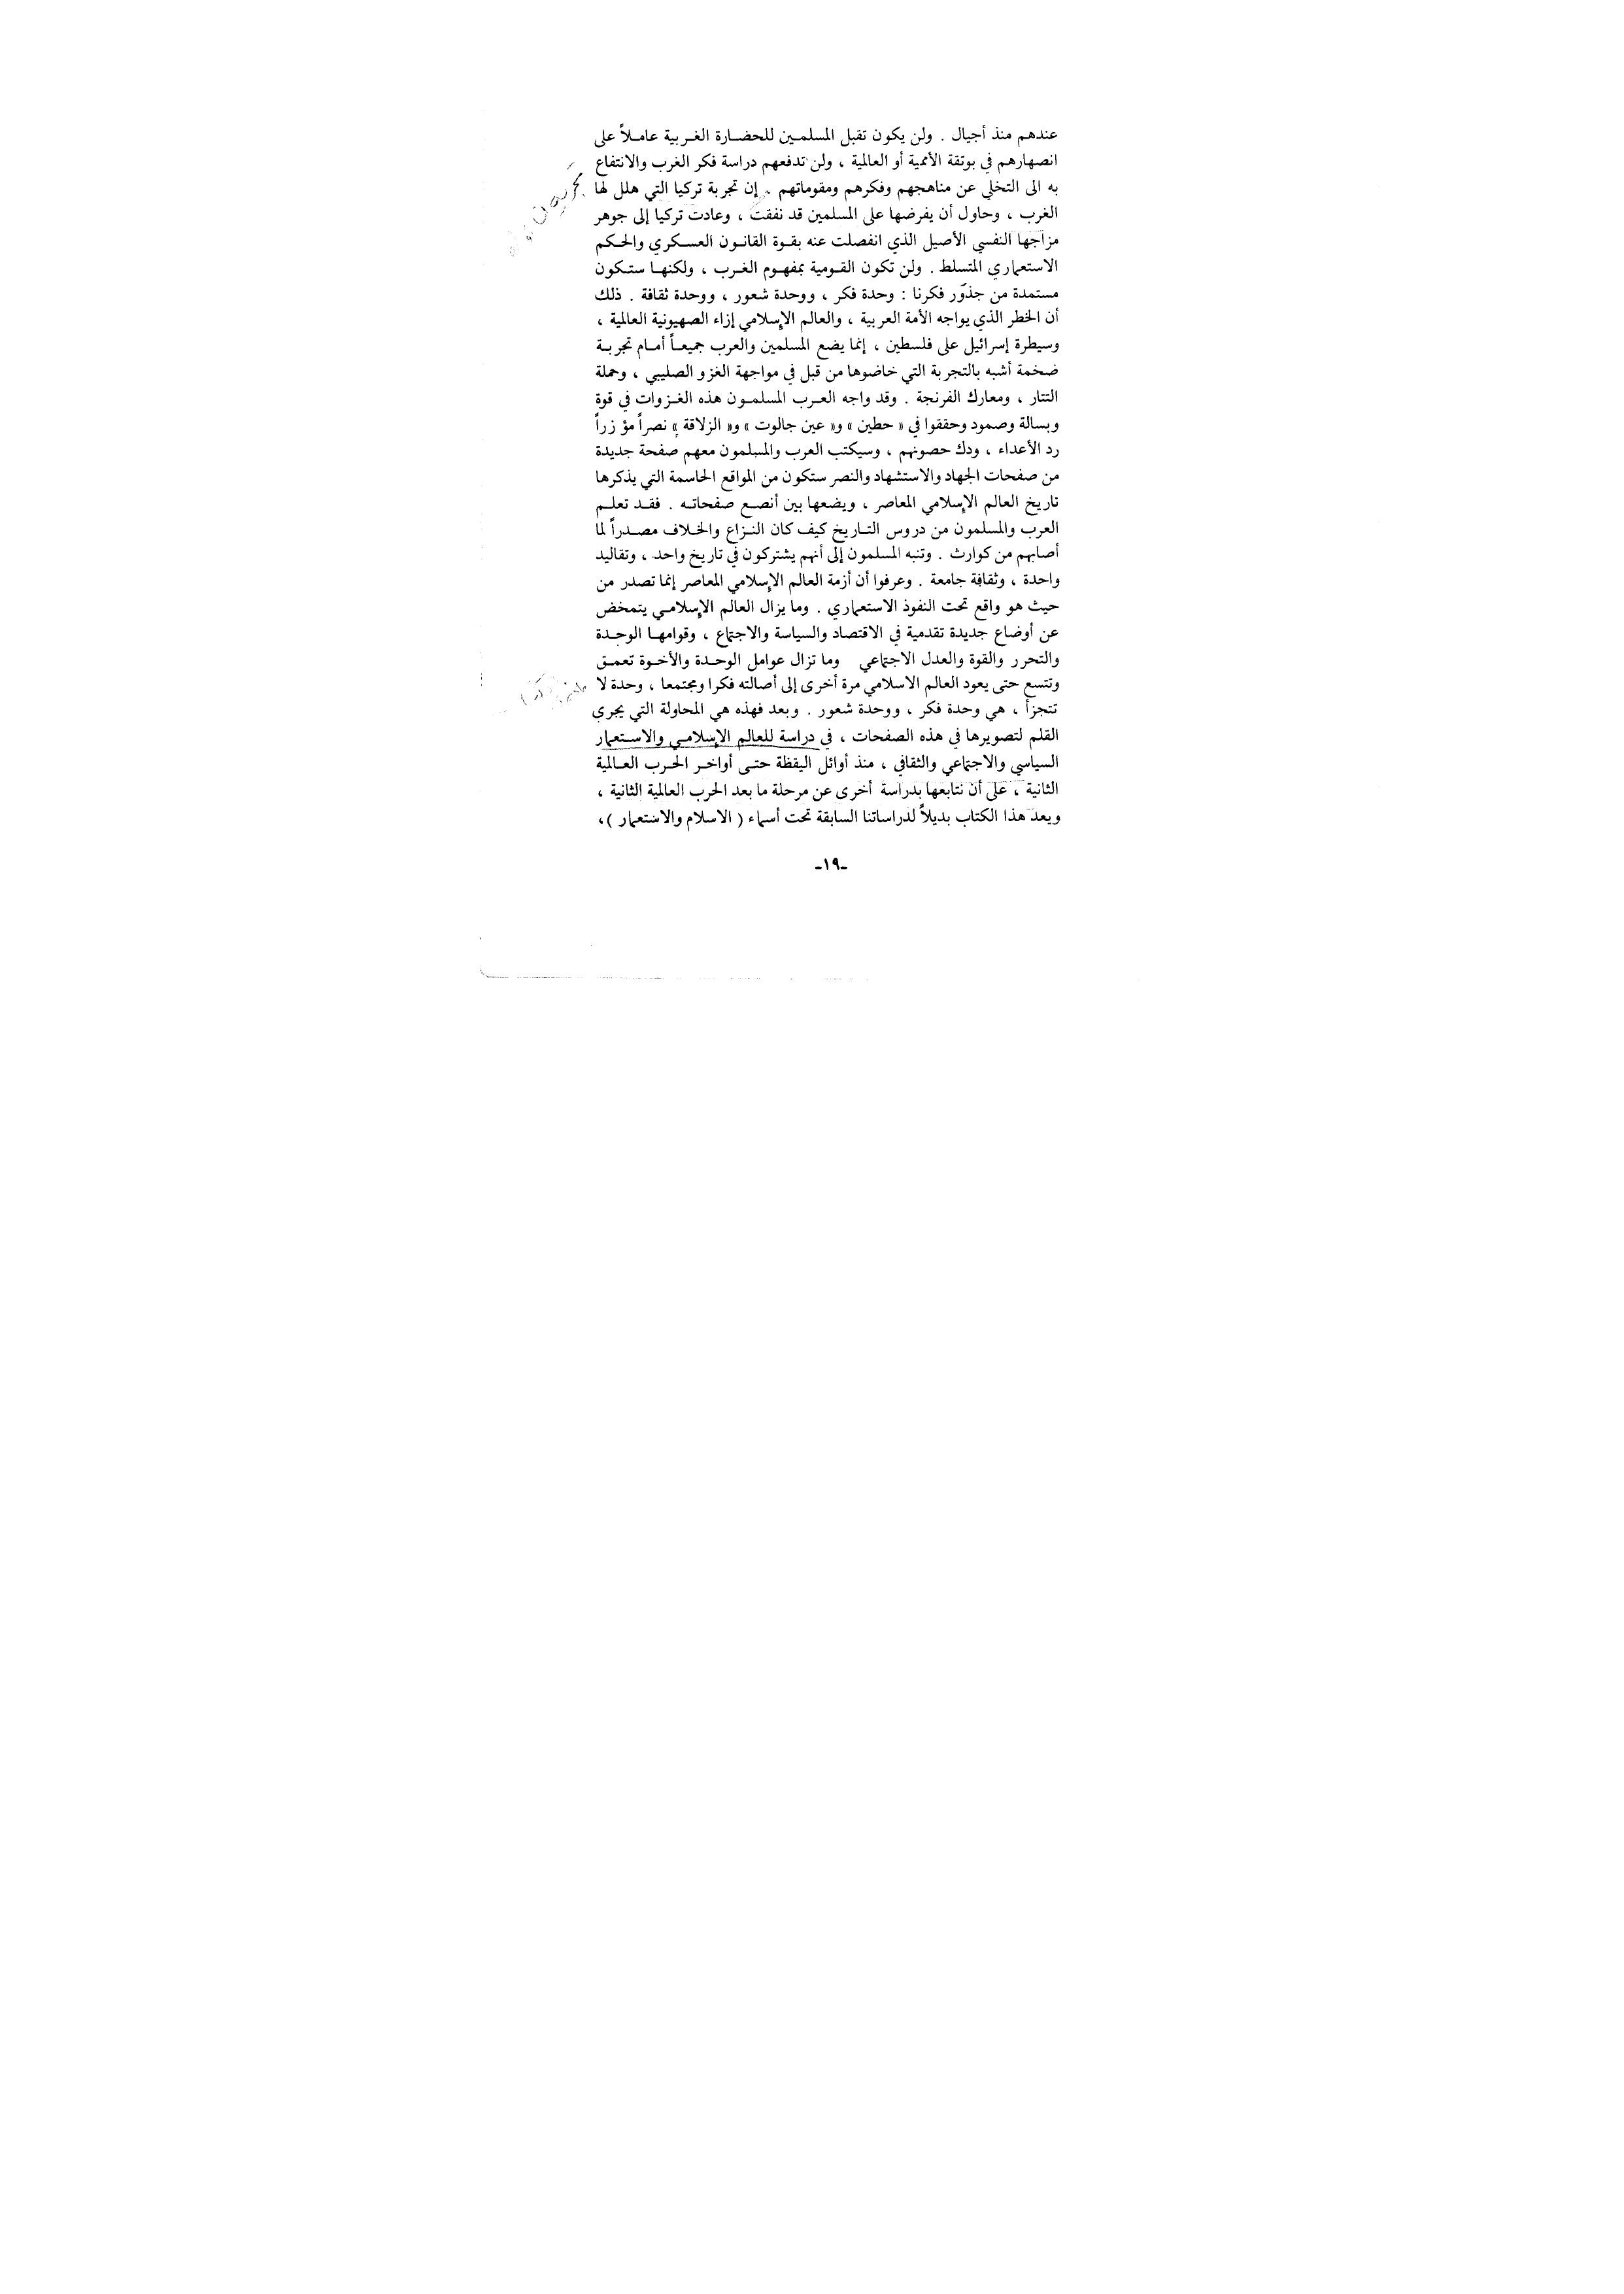 عندهم منذ أجيال . ولن يكون تقبل المسلمـين للحضـارة الغـربية عامـلاً على
انصهارهم في بوتقة الأممية أو العالمية ، ولن تدفعهم دراسة فكر الغرب والانتفاع
به الى التخلي عن مناهجهم وفكرهم ومقوماتهم . إن تجربة تركيا التي هلل لها
الغرب ، وحاول أن يفرضها على المسلمين قد نفقت ، وعادت تركيا إلى جوهر
مزاجها النفسي الأصيل الذي انفصلت عنه بقـوة القانـون العسـكري والحـكم
الاستعماري المتسلط . ولن تكون القـومية بمفهـوم الغـرب ، ولكنهـا ستـكون
مستمدة من جذور فكرنا : وحدة فكر ، ووحدة شعور ، ووحدة ثقافة . ذلك
أن الخطر الذي يواجه الأمة العربية ، والعالم الإسلامي إزاء الصهيونية العالمية ،
وسيطرة إسرائيل على فلسطين ، إنما يضع المسلمين والعرب جميعـاً أمـام تجربـة
ضخمة أشبه بالتجربة التي خاضوها من قبل في مواجهة الغزو الصليبي ، وحملة
التتار ، ومعارك الفرنجة . وقد واجه العـرب المسلمـون هذه الغـزوات في قوة
وبسالة وصمود وحققوا في « حطين » و« عين جالوت » و« الزلاقة » نصراً مؤ زراً
رد الأعداء ، ودك حصونهم ، وسيكتب العرب والمسلمون معهم صفحة جديدة
من صفحات الجهاد والاستشهاد والنصر ستكون من المواقع الحاسمة التي يذكرها
تاريخ العالم الإسلامي المعاصر ، ويضعها بين أنصـع صفحاتـه . فقـد تعلـم
العرب والمسلمون من دروس التـاريخ كيف كان النـزاع والخـلاف مصـدراً لما
أصابهم من كوارث . وتنبه المسلمون إلى أنهم يشتركون في تاريخ واحد ، وتقاليد
واحدة ، وثقافة جامعة . وعرفوا أن أزمة العالم الإسلامي المعاصر إنما تصدر من
حيث هو واقع تحت النفوذ الاستعماري . وما يزال العالم الإسلامـي يتمخض
عن أوضاع جديدة تقدمية في الاقتصاد والسياسة والاجتماع ، وقوامهـا الوحـدة
والتحرر والقوة والعدل الاجتماعي وما تزال عوامل الوحـدة والأخـوة تعمـق
وتتسع حتى يعود العالم الاسلامي مرة أخرى إلى أصالته فكرا ومجتمعا ، وحدة لا
تتجزأ ، هي وحدة فكر ، ووحدة شعور . وبعد فهذه هي المحاولة التي يجري
القلم لتصويرها في هذه الصفحات ، في دراسة للعالم الإسلامـي والاستـعمار
السياسي والاجتماعي والثقافي ، منذ أوائل اليقظة حتـى أواخـر الحـرب العـالمية
الثانية ، على أن نتابعها بدراسة أخرى عن مرحلة ما بعد الحرب العالمية الثانية ،
ويعد هذا الكتاب بديلاً لدراساتنا السابقة تحت أسماء ( الاسلام والاستعمار )،
-١٩-